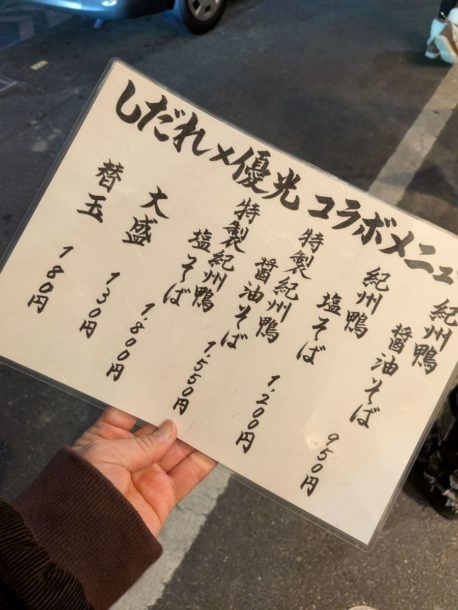 しだれ×優光 コラボメニュ
紀州鴨
醤油そば 950円
紀州鴨
塩そば 1,200円
特製紀州鴨
醤油そば 1,550円
特製紀州鴨
塩そば 1,800円
大盛 130円
替玉 180円